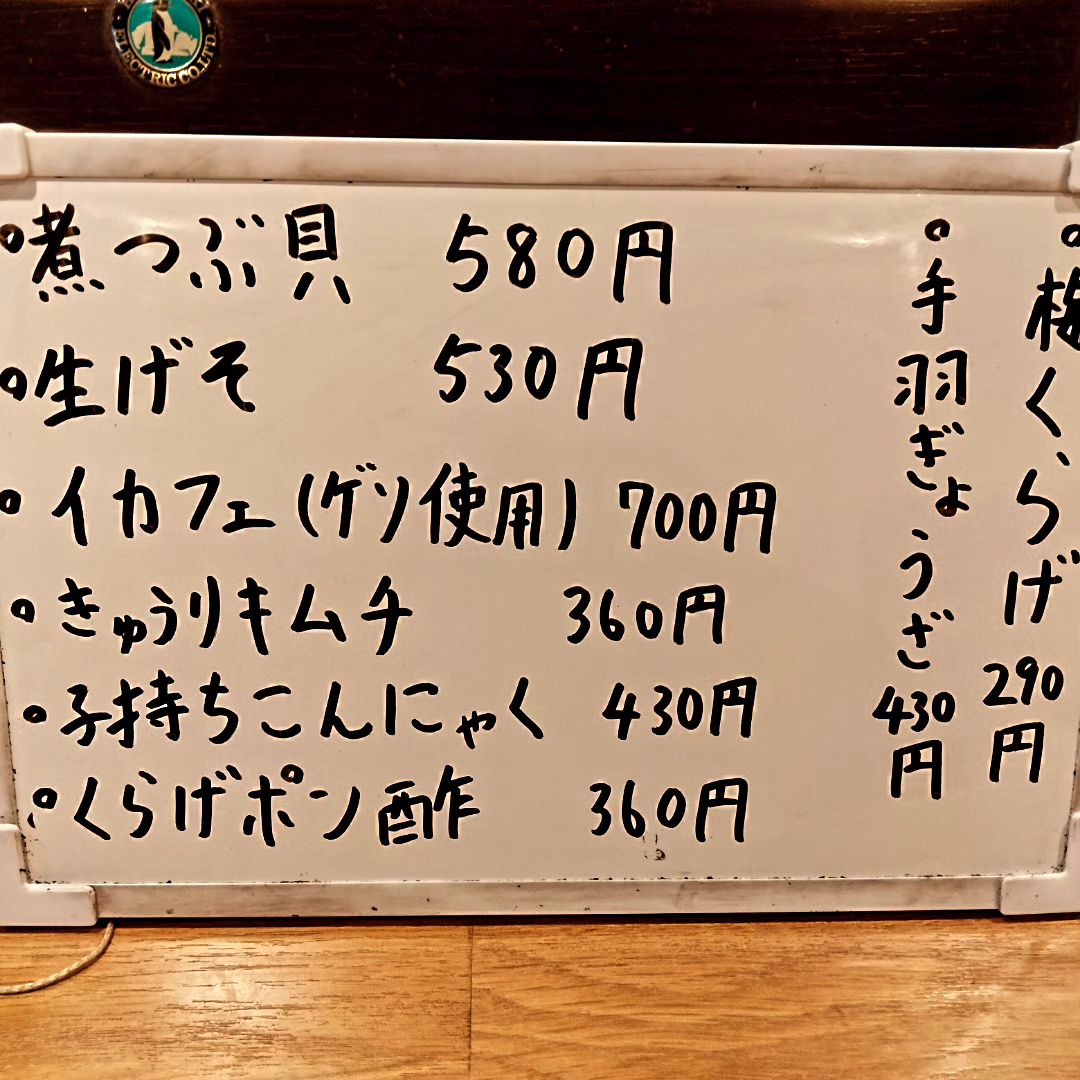 ELECTRIC CO.LTD.
• 煮つぶ貝 580円
• 生げそ 530円
• イカフェ(ゲソ使用) 700円
• きゅうりキムチ 360円
• 子持ちこんにゃく 430円
• くらげポン酢 360円
• 梅くらげ 290円
• 手羽ぎょうざ 430円